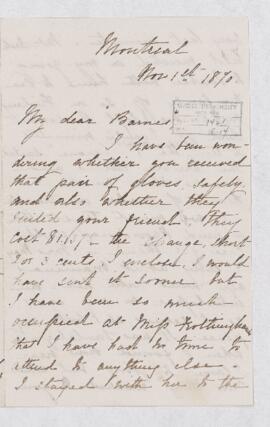 Montreal
Nov 1st 1870
My dear Barnes
I have been won-
dering whether you received
that pair of gloves safely
and also whether they
suited your friend. They
cost $1.17 - the change, short
2 or 3 cents, I enclose. I would
have sent it sooner but
I have been so much
occupied at Miss Frothingham's
that I have had no time to
attend to anything else -
I stayed with her to the